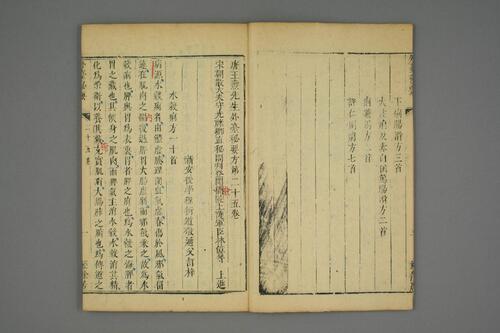 下痢腸滑方三首
大注痢及赤白困篤腸滑方二首
許仁則痢方七首
唐王燾先生外臺秘要方第二十五卷
宋朝散大夫守光祿卿直秘閣判登聞檢院上護軍臣林億等 上進
新安後學程衍道敬通父訂梓
水穀痢方一十首
病源水穀痢者由體虛腠理開血氣虛春傷於風邪氣留
連在肌肉之內後遇脾胃大腸虛弱而邪氣乘之故為水
穀痢也脾與胃為表裏胃者脾之腑也為水穀之海脾者
胃之藏也其候身之肌肉而脾氣主消水穀水穀消其精
化為榮衞以養其藏充實肌膚大腸肺之腑也為傳道之